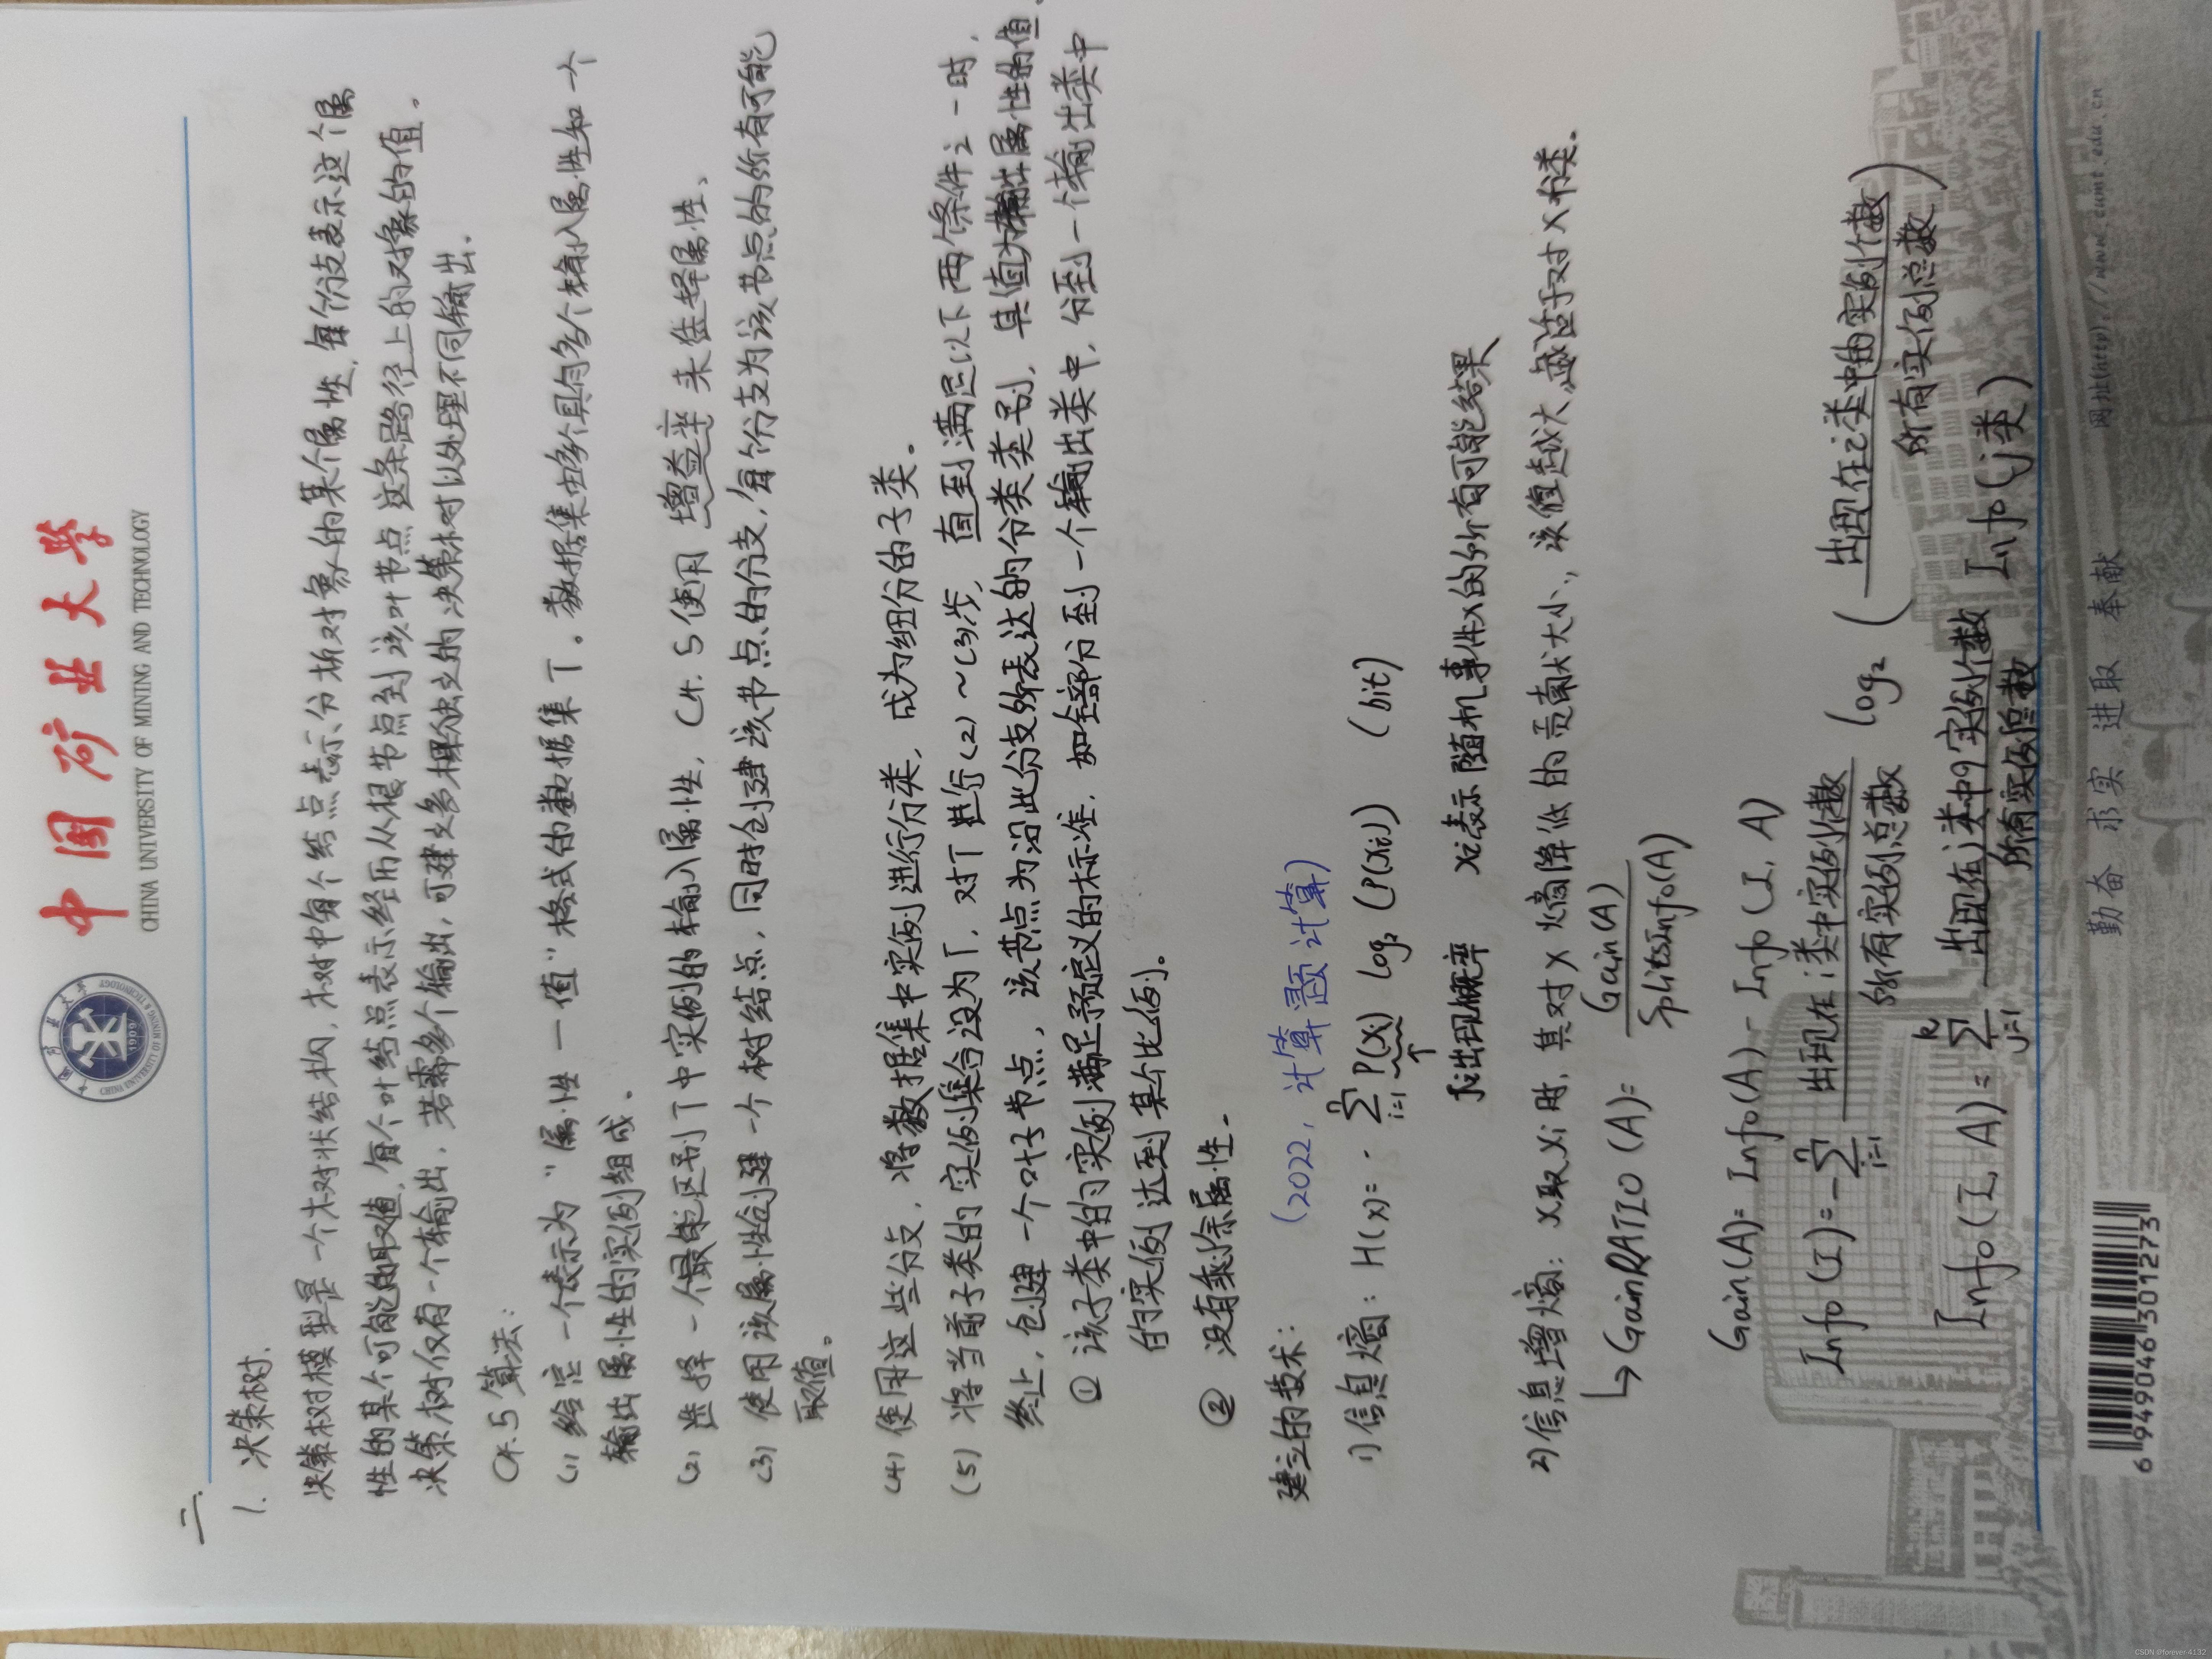 中国矿业大学
CHINA UNIVERSITY OF MINING AND TECHNOLOGY
二.
1. 决策树.
决策树模型是一个树状结构, 树中每个结点表示分析对象的某个属性, 每个分支表示这个属
性的某个可能的取值, 每个叶结点表示经历从根节点到该叶节点这条路径上的对象的值.
决策树仅有一个输出, 若需多个输出, 可建立多棵独立的决策树以处理不同输出.
C4.5算法:
(1) 给定一个表示为"属性—值"格式的数据集T。数据集由多个具有多个输入属性和一个
输出属性的实例组成.
(2) 选择一个最能区别T中实例的输入属性, C4.5使用增益率来选择属性.
(3) 使用该属性创建一个树结点, 同时创建该节点的分支, 每个分支为该节点的所有可能
取值。
(4) 使用这些分支, 将数据集中实例进行分类, 成为细分的子类。
(5) 将当前子类的实例集合设为T, 对T进行(2)~(3)步, 直到满足以下两个条件之一时,
终止, 创建一个叶子节点, 该节点为沿此分支所表达的分类类别, 其值为输出属性的值.
① 该子类中的实例满足预定义的标准, 如全部分到一个输出类中, 分到一个输出类中
的实例达到某个比例。
② 没有剩余属性.
建立的技术: (2022, 计算题计算)
1) 信息熵: H(x)= - ∑ P(xi) log₂ (P(xi)) (bit)
i=1 n
↑
Ji出现概率 xi表示随机事件x的所有可能结果
2) 信息增熵: X取xi时, 其对X熵降低的贡献大小, 该值越大, 越适于对X分类.
↳ GainRATIO (A)= Gain(A) / SplitsInfo(A)
Gain(A)= Info(A) - Info(I, A)
Info(I)= -∑ 出现在i类中实例个数 / 所有实例总数 log₂ ( 出现在i类中的实例个数 / 所有实例总数 )
i=1 n
Info(I, A)= ∑ 出现在j类中实例个数 / 所有实例总数 Info(j类)
j=1 k
勤奋 求实 进取 奉献 网址(http)://www.cumt.edu.cn
6 949046 301273
CSDN @forever-4132